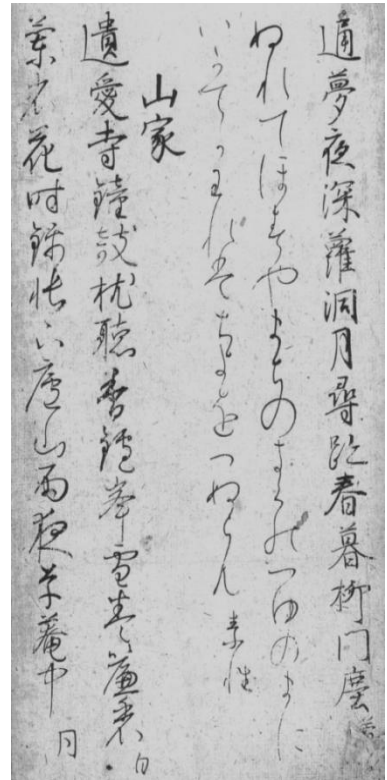 通夢夜深蘿洞月尋跡春暮柳門塵 菅
ぬれてほすやまちのきくのつゆのまに
いかてかわれはちよをへぬらん 素性
山家
遺愛寺鐘敧枕聽香鑪峯雪撥簾看 白
蘭省花時錦帳下廬山雨夜草菴中 同